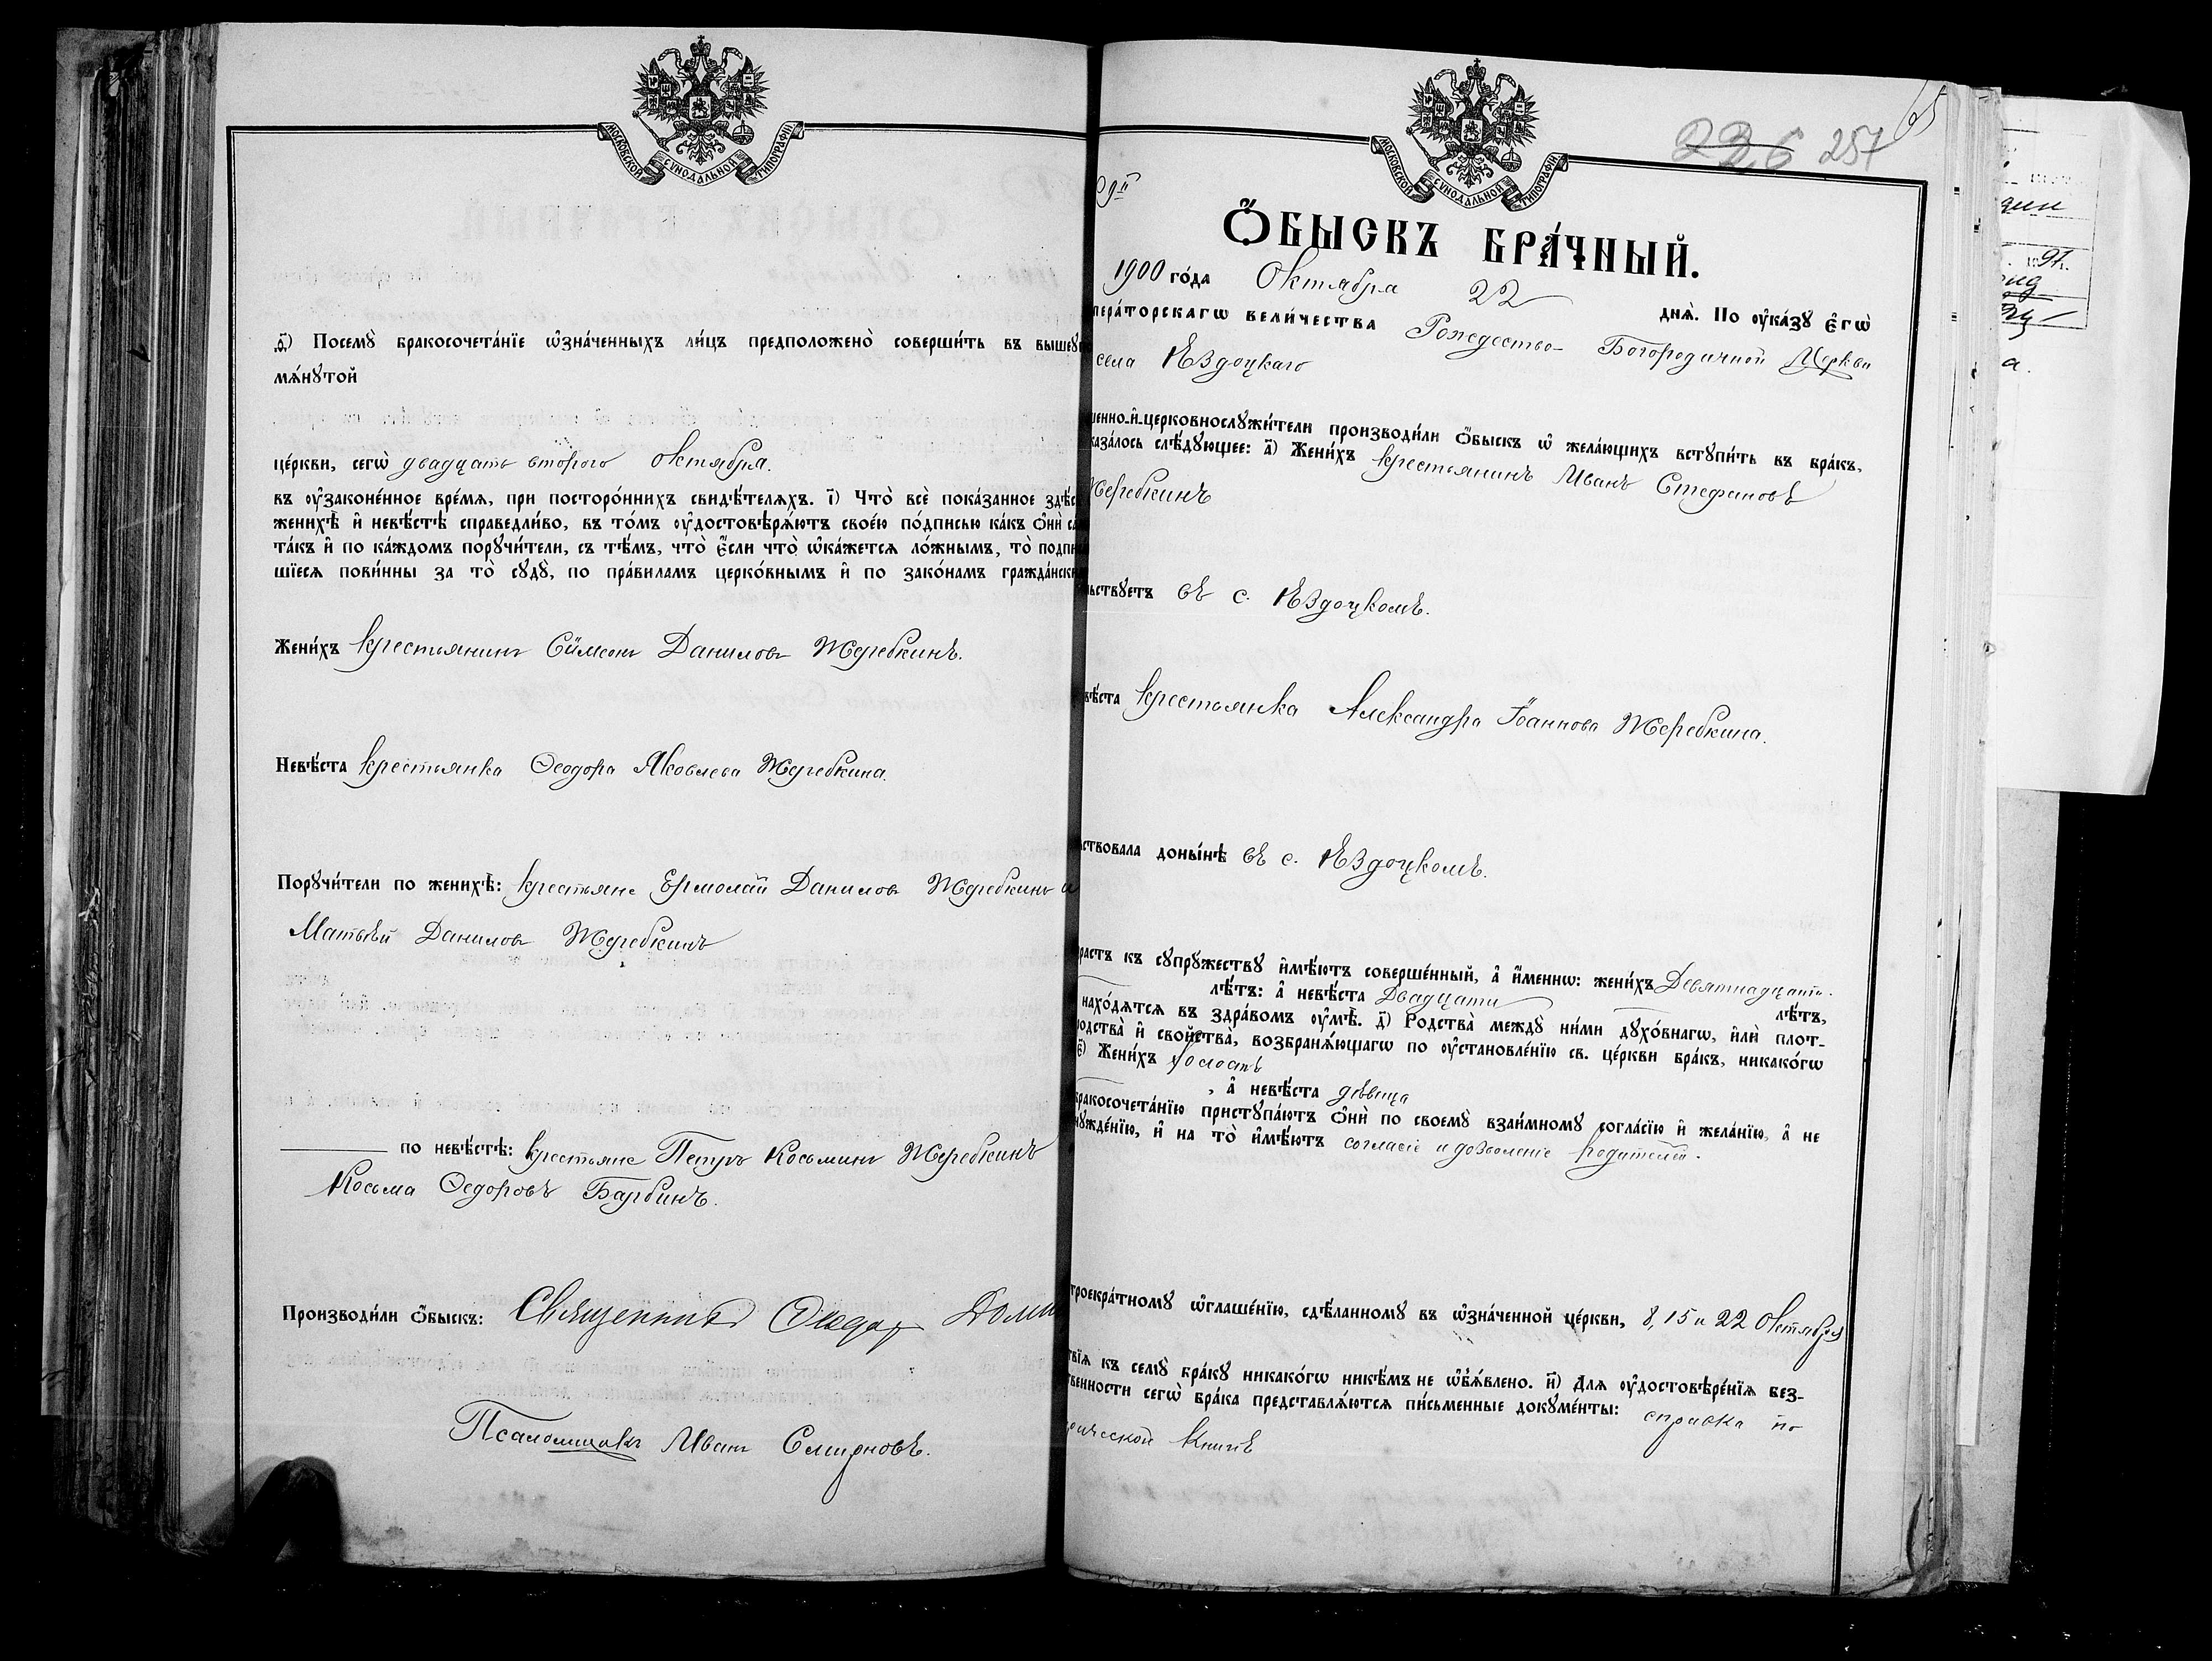 МОСКОВСКОЙ СѴНОДАЛЬНОЙ ТИПОГРАФІИ
д҃) Посемꙋ̀ бракосочета́нїе ѡ҆зна́ченныхъ ли́цъ предположено̀ соверши́ть въ вышеꙋ
мѧ́нꙋтой
це́ркви, сегѡ̀ двадцать второго октября.
въ ᲂу҆зако́не́нное вре́мѧ, при посторо́ннихъ свидѣ́телѧхъ. і҃) Что̀ всѐ пока́занное здѣ́с
женихѣ̀ и҆ невѣ́стѣ справедли́во, въ то́мъ ᲂу҆достовѣрѧ́ютъ свое́ю по́дписью ка́къ ѻ҆нѝ са
та́къ и҆ по ка́ждомъ порꙋчи́тели, съ тѣ́мъ, что̀ є҆́сли что̀ ѡ҆ка́жетсѧ ло́жнымъ, то̀ подпи
шїесѧ пови́нны за то̀ сꙋдꙋ̀, по пра́виламъ церко́внымъ и҆ по зако́намъ гражда́нски
Жени́хъ крестьянинъ Сѵмеонъ Даниловъ Жеребкинъ.
Невѣ́ста крестьянка Ѳеодора Яковлева Жеребкина.
Порꙋчи́тели по женихѣ̀: крестьяне Ермолай Даниловъ Жеребкинъ и
Матѳѣй Даниловъ Жеребкинъ
по невѣ́стѣ: крестьяне Петръ Косьминъ Жеребкинъ
Косьма Ѳедоровъ Барбинъ.
Производи́ли ѻ҆́быскъ: Священникъ Ѳеодор
Псаломщикъ Иван Смирновъ.
МОСКОВСКОЙ СѴНОДАЛЬНОЙ ТИПОГРАФІИ
226 257
65
Ѻ҆́БЫСКЪ БРА́ЧНЫЙ.
1900 го́да Октября 22 днѧ̀. По ᲂу҆ка́зꙋ є҆гѡ̀
пера́торскагѡ вели́чества Рождество-Богородичной Церкви
села Ѣздоцкаго
щенно-и҆-церковнослꙋжи́тели производи́ли ѻ҆́быскъ ѡ҆ жела́ющихъ встꙋпи́ть въ бра́къ,
каза́лось слѣ́дꙋющее: а҃) Жени́хъ крестьянинъ Иванъ Стефановъ
Жеребкинъ
льствꙋетъ въ с. Ѣздоцкомъ.
вѣ́ста крестьянка Александра Іоаннова Жеребкина.
ьствовала доны́нѣ въ с. Ѣздоцкомъ.
растъ къ сꙋпрꙋжествꙋ и҆мѣ́ютъ соверше́нный, а҆ и҆́менно: жени́хъ Девятнадцать
лѣ́тъ: а҆ невѣ́ста Двадцати лѣ́тъ,
нахо́дѧтсѧ въ здра́вомъ ᲂу҆мѣ̀. д҃) Родства̀ междꙋ̀ ни́ми дꙋхо́внагѡ, и҆лѝ плот-
родства̀ и҆ свойства̀, возбранѧ́ющагѡ по ᲂу҆становле́нїю св. це́ркви бра́къ, никако́гѡ
є҃) Жени́хъ холостъ
, а҆ невѣ́ста дѣвица
бракосочета́нїю пристꙋпа́ютъ ѻ҆нѝ по своемꙋ̀ взаи́мномꙋ согла́сїю и҆ жела́нїю, а҆ не
нꙋжде́нїю, и҆ на то̀ и҆мѣ́ютъ согласіе и дозволеніе родителей.
троекра́тномꙋ ѡ҆глаше́нїю, сдѣ́ланномꙋ въ ѡ҆зна́ченной це́ркви, 8, 15 и 22 Октября
твїѧ къ семꙋ̀ бра́кꙋ никако́гѡ никѣ́мъ не ѡ҆б̾ѧ́влено. и҃) Для ᲂу҆достовѣре́нїѧ без-
твенности сегѡ̀ бра́ка представлѧ́ютсѧ пи́сьменные докꙋме́нты: справка по
рической книгѣ